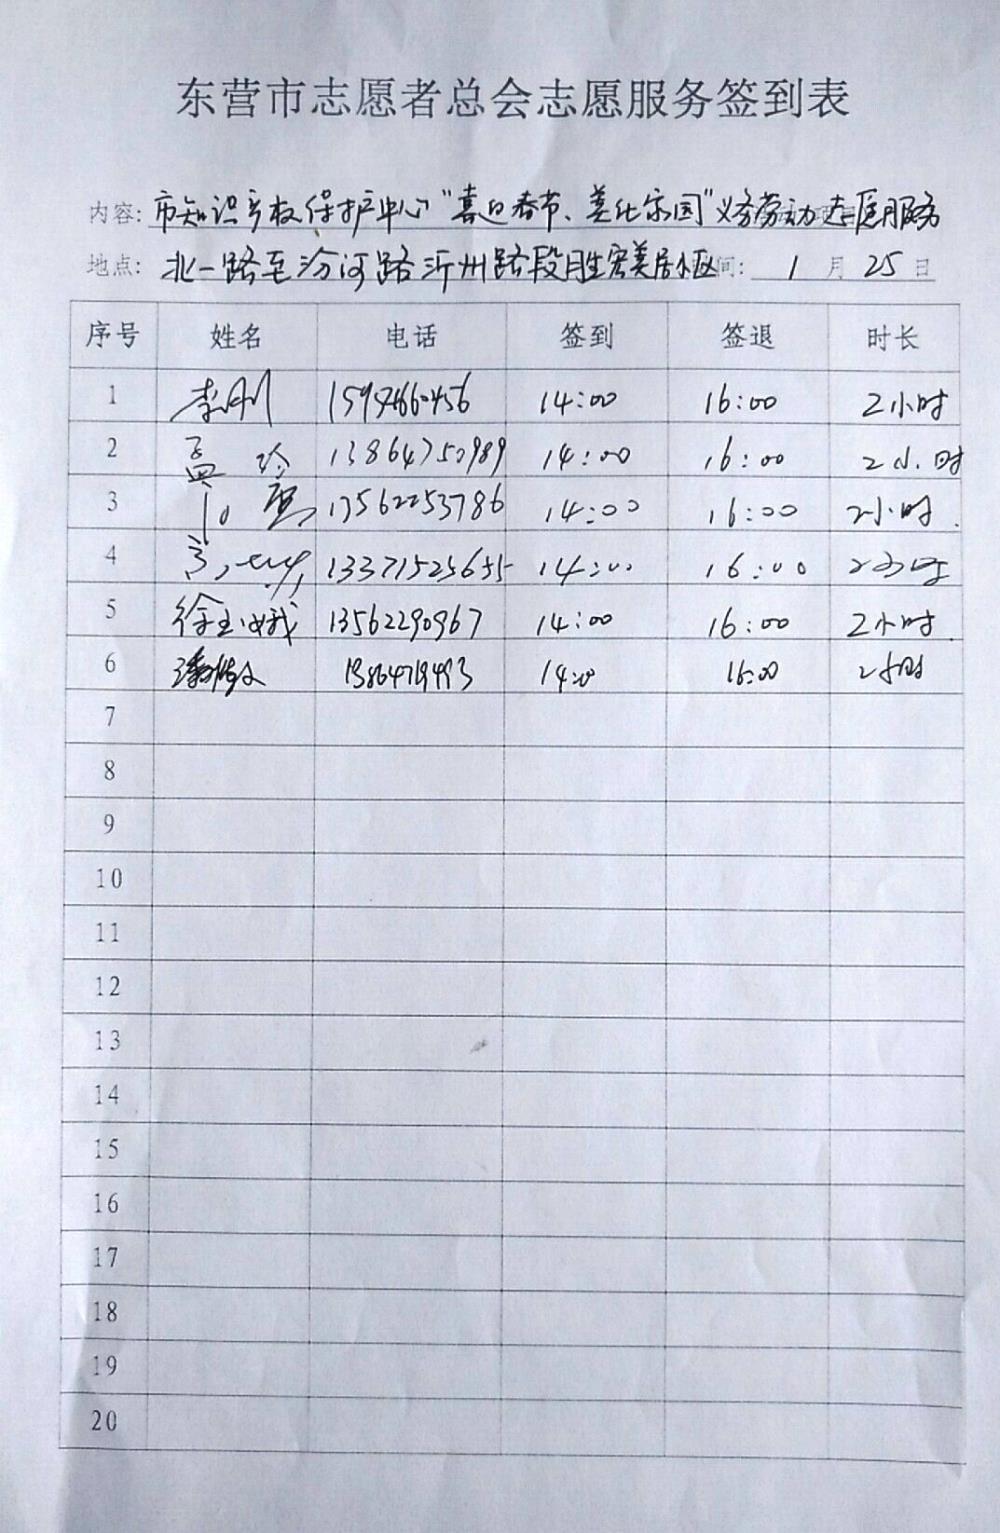 东营市志愿者总会志愿服务签到表
内容: 市知识产权保护中心"喜迎春节、美化家园"义务劳动志愿服务
地点: 北一路至汾河路沂州路段胜宏美居小区 间: 1 月 25 日
序号 姓名 电话 签到 签退 时长
1 李刚 14:00 16:00 2小时
2 孟玲 13864750989 14:00 16:00 2小时
3 13562253786 14:00 16:00 2小时.
4 13371525655 14:00 16:00 2小时
5 徐玉娥 13562290967 14:00 16:00 2小时.
6 13864719493 14:00 16:00 2小时
7
8
9
10
11
12
13
14
15
16
17
18
19
20